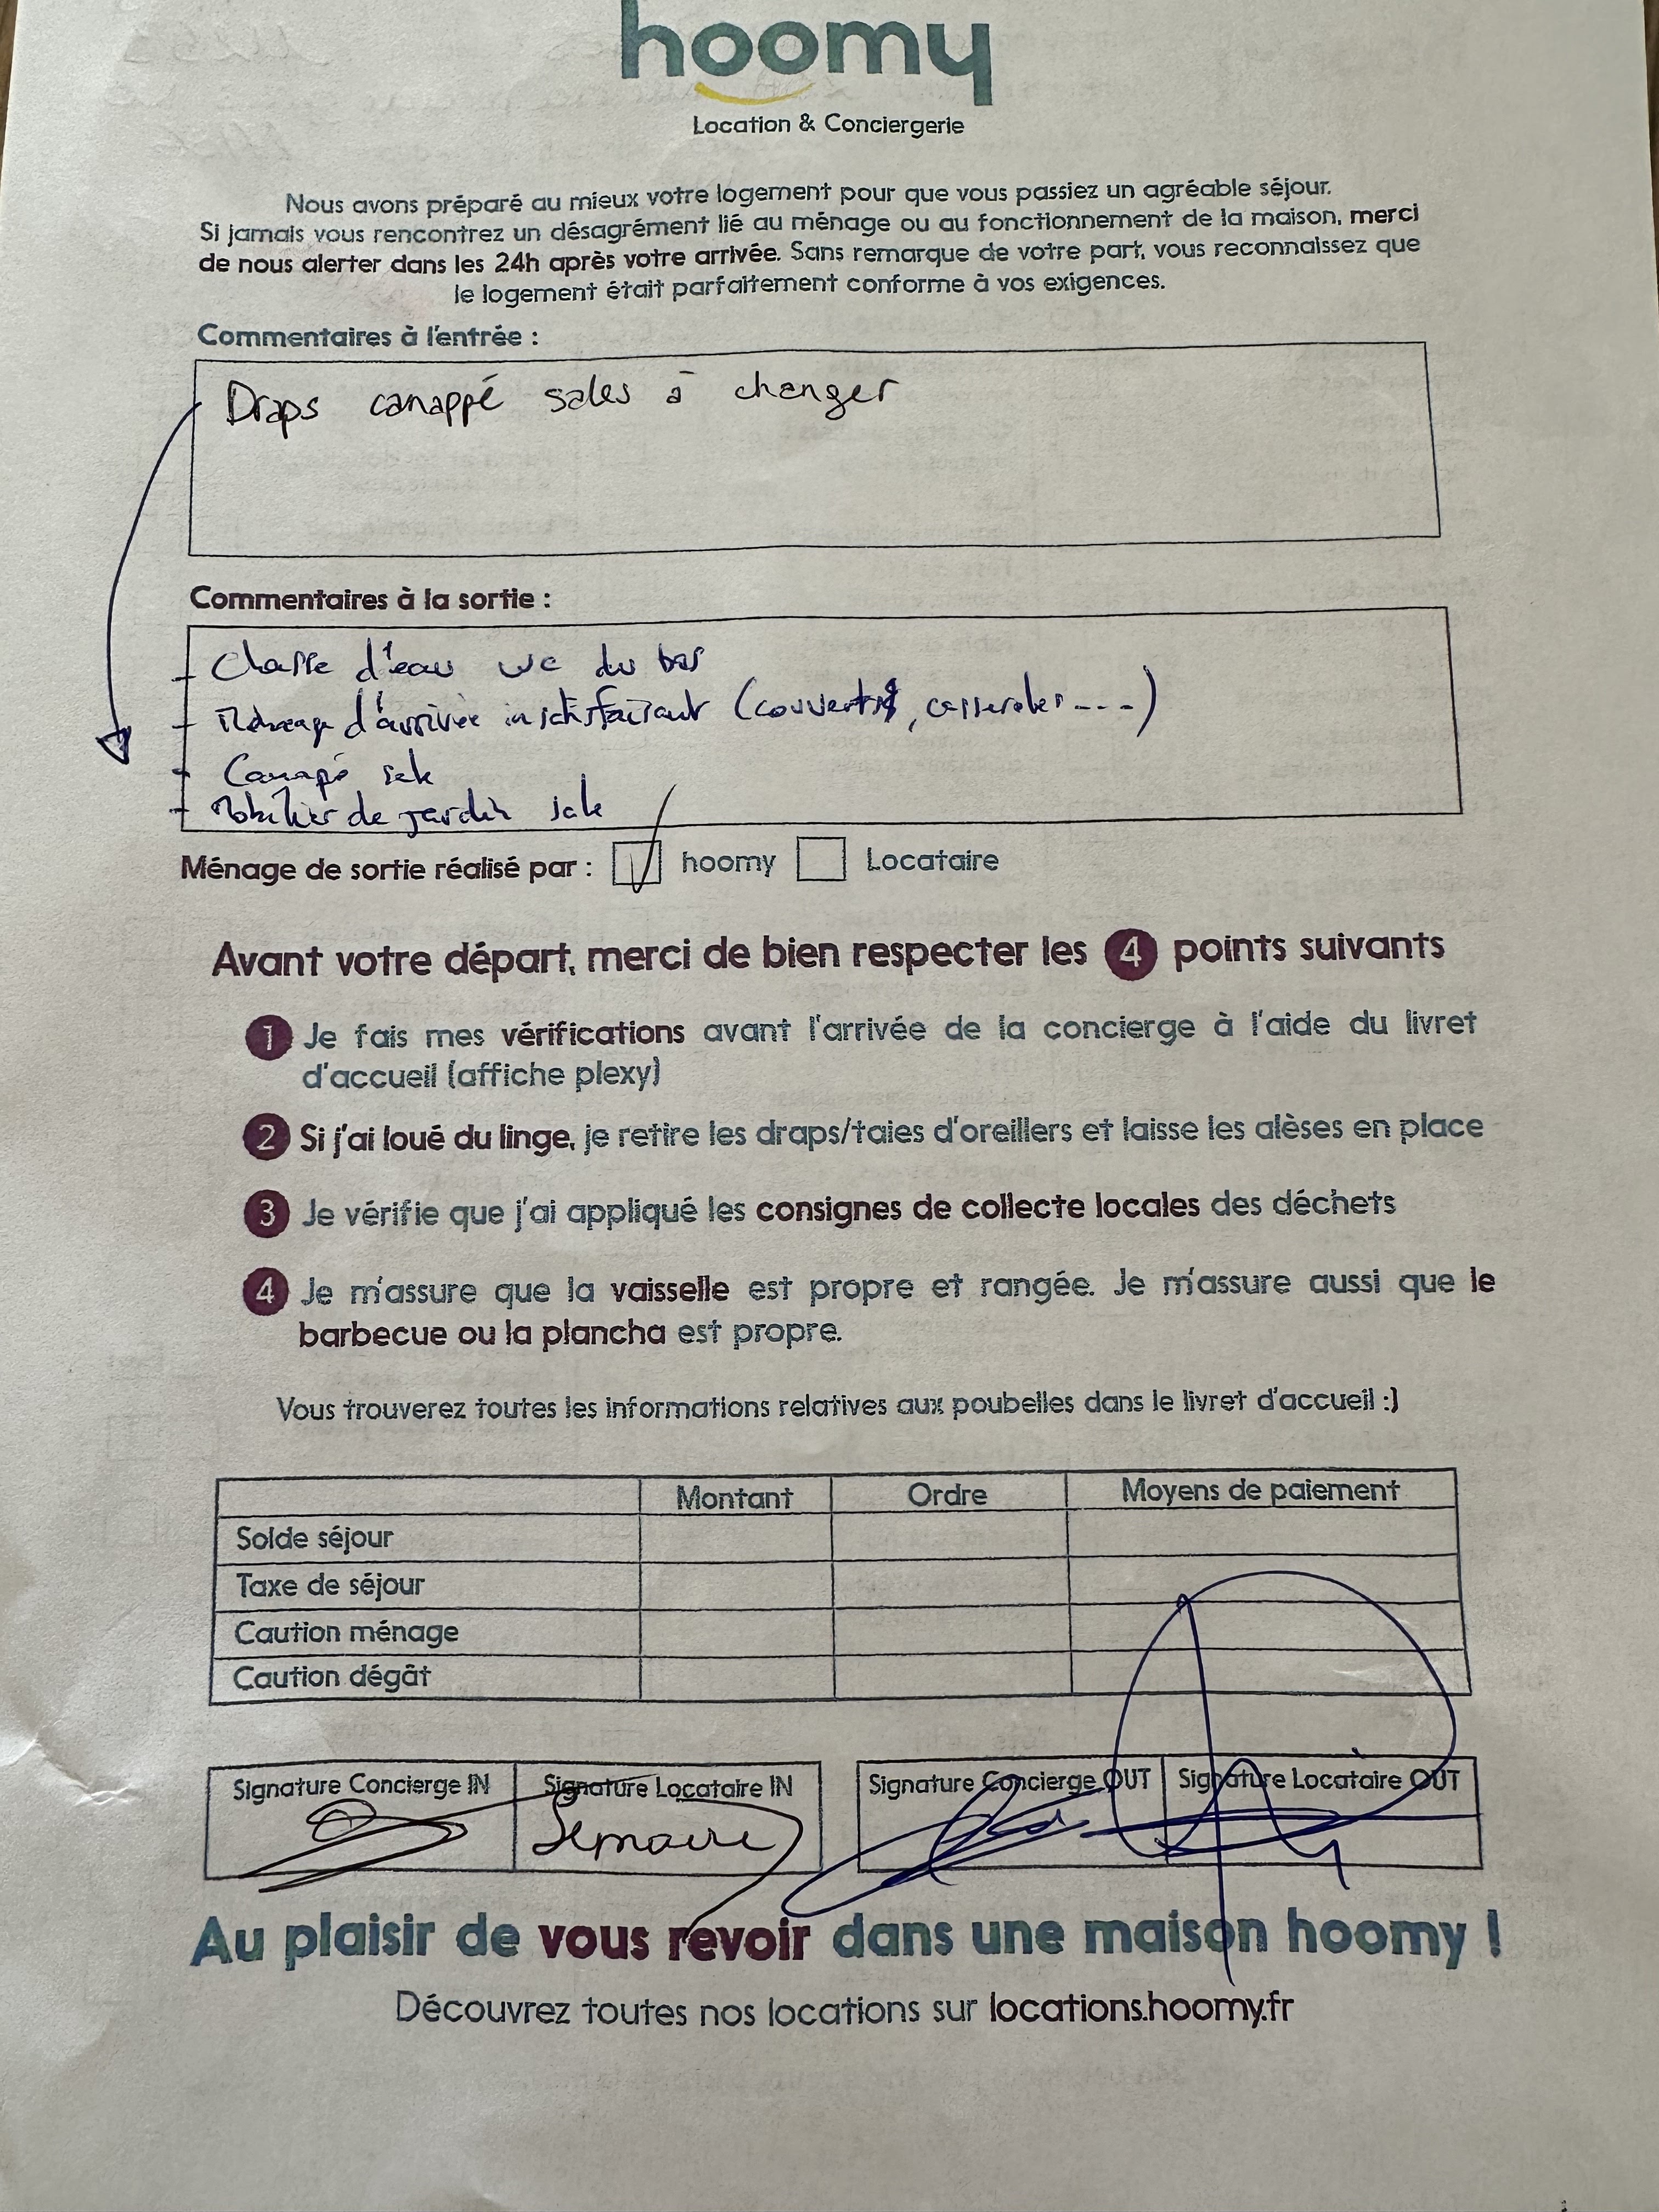 hoomy
Location & Conciergerie
Nous avons préparé au mieux votre logement pour que vous passiez un agréable séjour.
Si jamais vous rencontrez un désagrément lié au ménage ou au fonctionnement de la maison, merci
de nous alerter dans les 24h après votre arrivée. Sans remarque de votre part, vous reconnaissez que
le logement était parfaitement conforme à vos exigences.
Commentaires à l'entrée :
Draps canappé sales à changer
Commentaires à la sortie :
- Chasse d'eau wc du bas
- Ménage d'arrivée insatisfaisant (couverts, casseroles ---)
- Canapé sale
- Mobilier de jardin sale
Ménage de sortie réalisé par : hoomy Locataire
Avant votre départ, merci de bien respecter les 4 points suivants
1 Je fais mes vérifications avant l'arrivée de la concierge à l'aide du livret
d'accueil (affiche plexy)
2 Si j'ai loué du linge, je retire les draps/taies d'oreillers et laisse les alèses en place
3 Je vérifie que j'ai appliqué les consignes de collecte locales des déchets
4 Je m'assure que la vaisselle est propre et rangée. Je m'assure aussi que le
barbecue ou la plancha est propre.
Vous trouverez toutes les informations relatives aux poubelles dans le livret d'accueil :)
Montant Ordre Moyens de paiement
Solde séjour
Taxe de séjour
Caution ménage
Caution dégât
Signature Concierge IN Signature Locataire IN Signature Concierge OUT Signature Locataire OUT
Au plaisir de vous revoir dans une maison hoomy !
Découvrez toutes nos locations sur locations.hoomy.fr